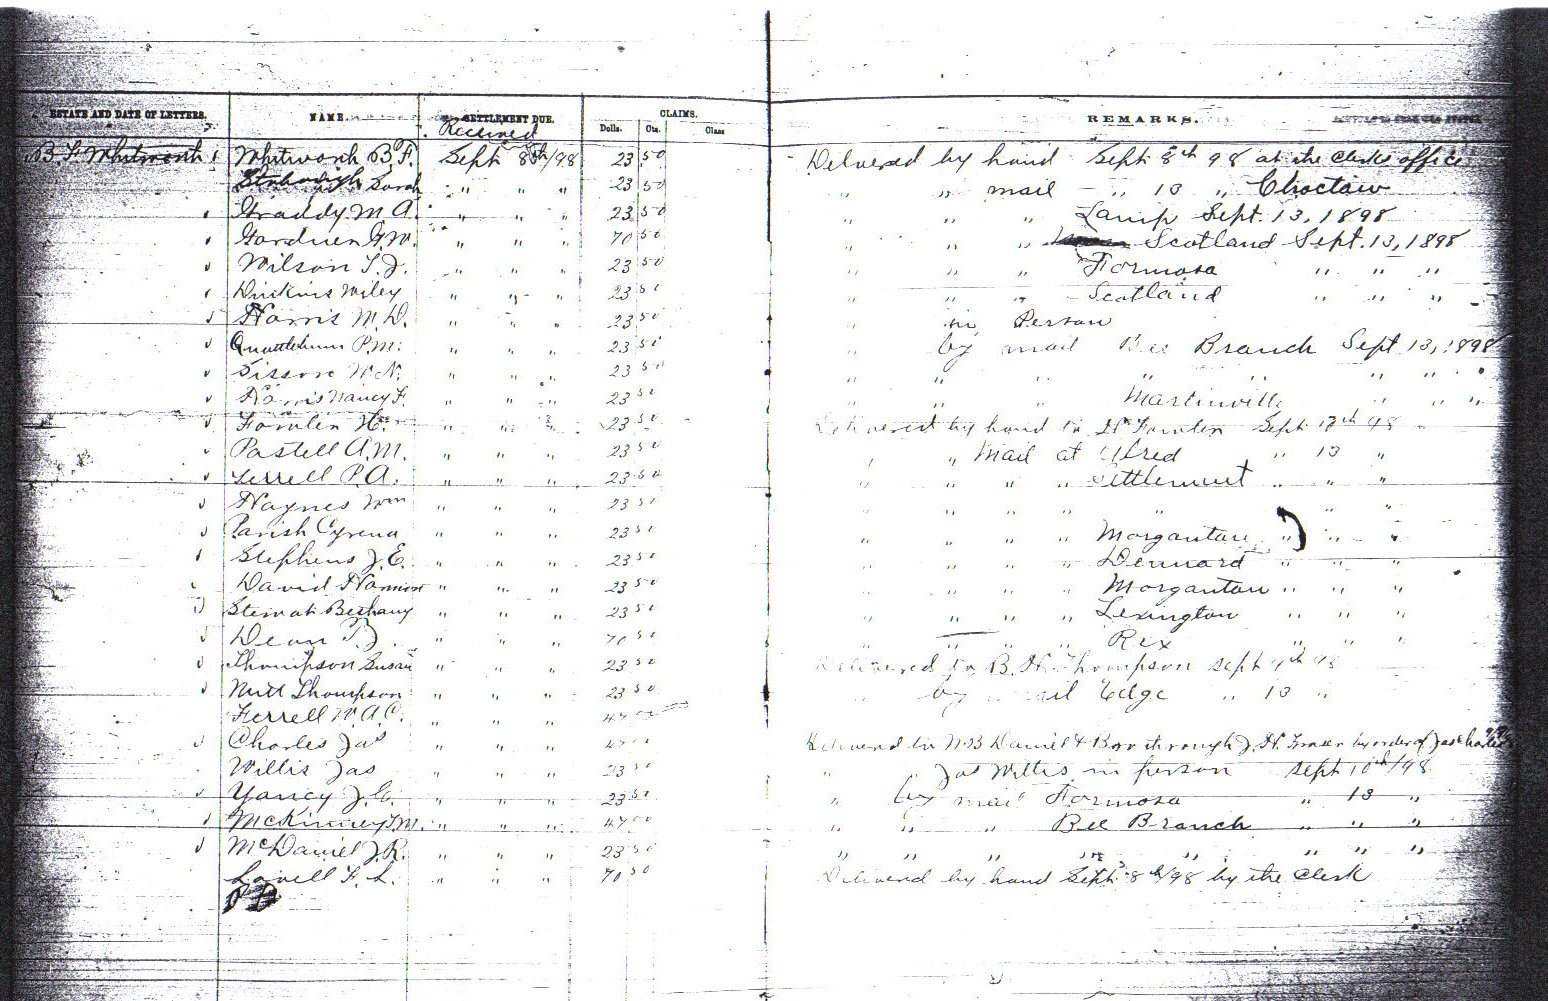 ESTATE AND DATE OF LETTERS. NAME. SETTLEMENT DUE. CLAIMS. REMARKS.
Received Dolls. Cts. Class
B F Whitworth Whitworth B F. Sept 8th/98 23 50 Delivered by hand Sept 8th 98 at the clerks office
Sarah " " " 23 50 " " mail " 13 " Choctaw
Graddy M A. " " " 23 50 " " " Lamp Sept. 13, 1898
Gardner G W. " " " 70 50 " " " Scotland Sept. 13, 1898
Wilson T. J. " " " 23 50 " " " Formosa " " "
Dinkins Wiley " " " 23 50 " " " Scotland " " "
Harris M. D. " " " 23 50 " in Person
Quattlebum P. M. " " " 23 50 " by mail Bee Branch Sept 13, 1898
Sisson W. N. " " " 23 50 " " " " " " " "
Harris Nancy F. " " " 23 50 " " " Martinville " " "
Fowler H. " " " 23 50 Delivered by hand to H Fowler Sept 17th 98
Pastell A. M. " " " 23 50 " " Mail at Alred " 13 "
Terrell P. A. " " " 23 50 " " " " Settlement " " "
Haynes Wm " " " 23 50 " " " " " " " "
Parish Cyrena " " " 23 50 " " " " Morganton " " "
Stephens J. E. " " " 23 50 " " " " Dennard " " "
David Harmon " " " 23 50 " " " " Morganton " " "
Bethany " " " 23 50 " " " " Lexington " " "
Dean T. J. " " " 70 50 " " " " Rex " " "
Thompson Susan " " " 23 50 Delivered to B. H. Thompson Sept 9th 98
Nutt Thompson " " " 23 50 " by mail Edge " 13 "
Ferrell W. A. C. " " " 47 00
Charles Jas " " " 47 00 Delivered to N B Daniel & Bro through J. H. Fraser by order of Jas Charles
Willis Jas " " " 23 50 " " Jas Willis in person Sept 10th/98
Yancy J. C. " " " 23 50 " by mail Formosa " 13 "
McKinney T. M. " " " 47 00 " " " Bee Branch " " "
McDaniel J. R. " " " 23 50 " " " " " " " "
Lovell F. L. " " " 70 50 Delivered by hand Sept 8th/98 by the Clerk